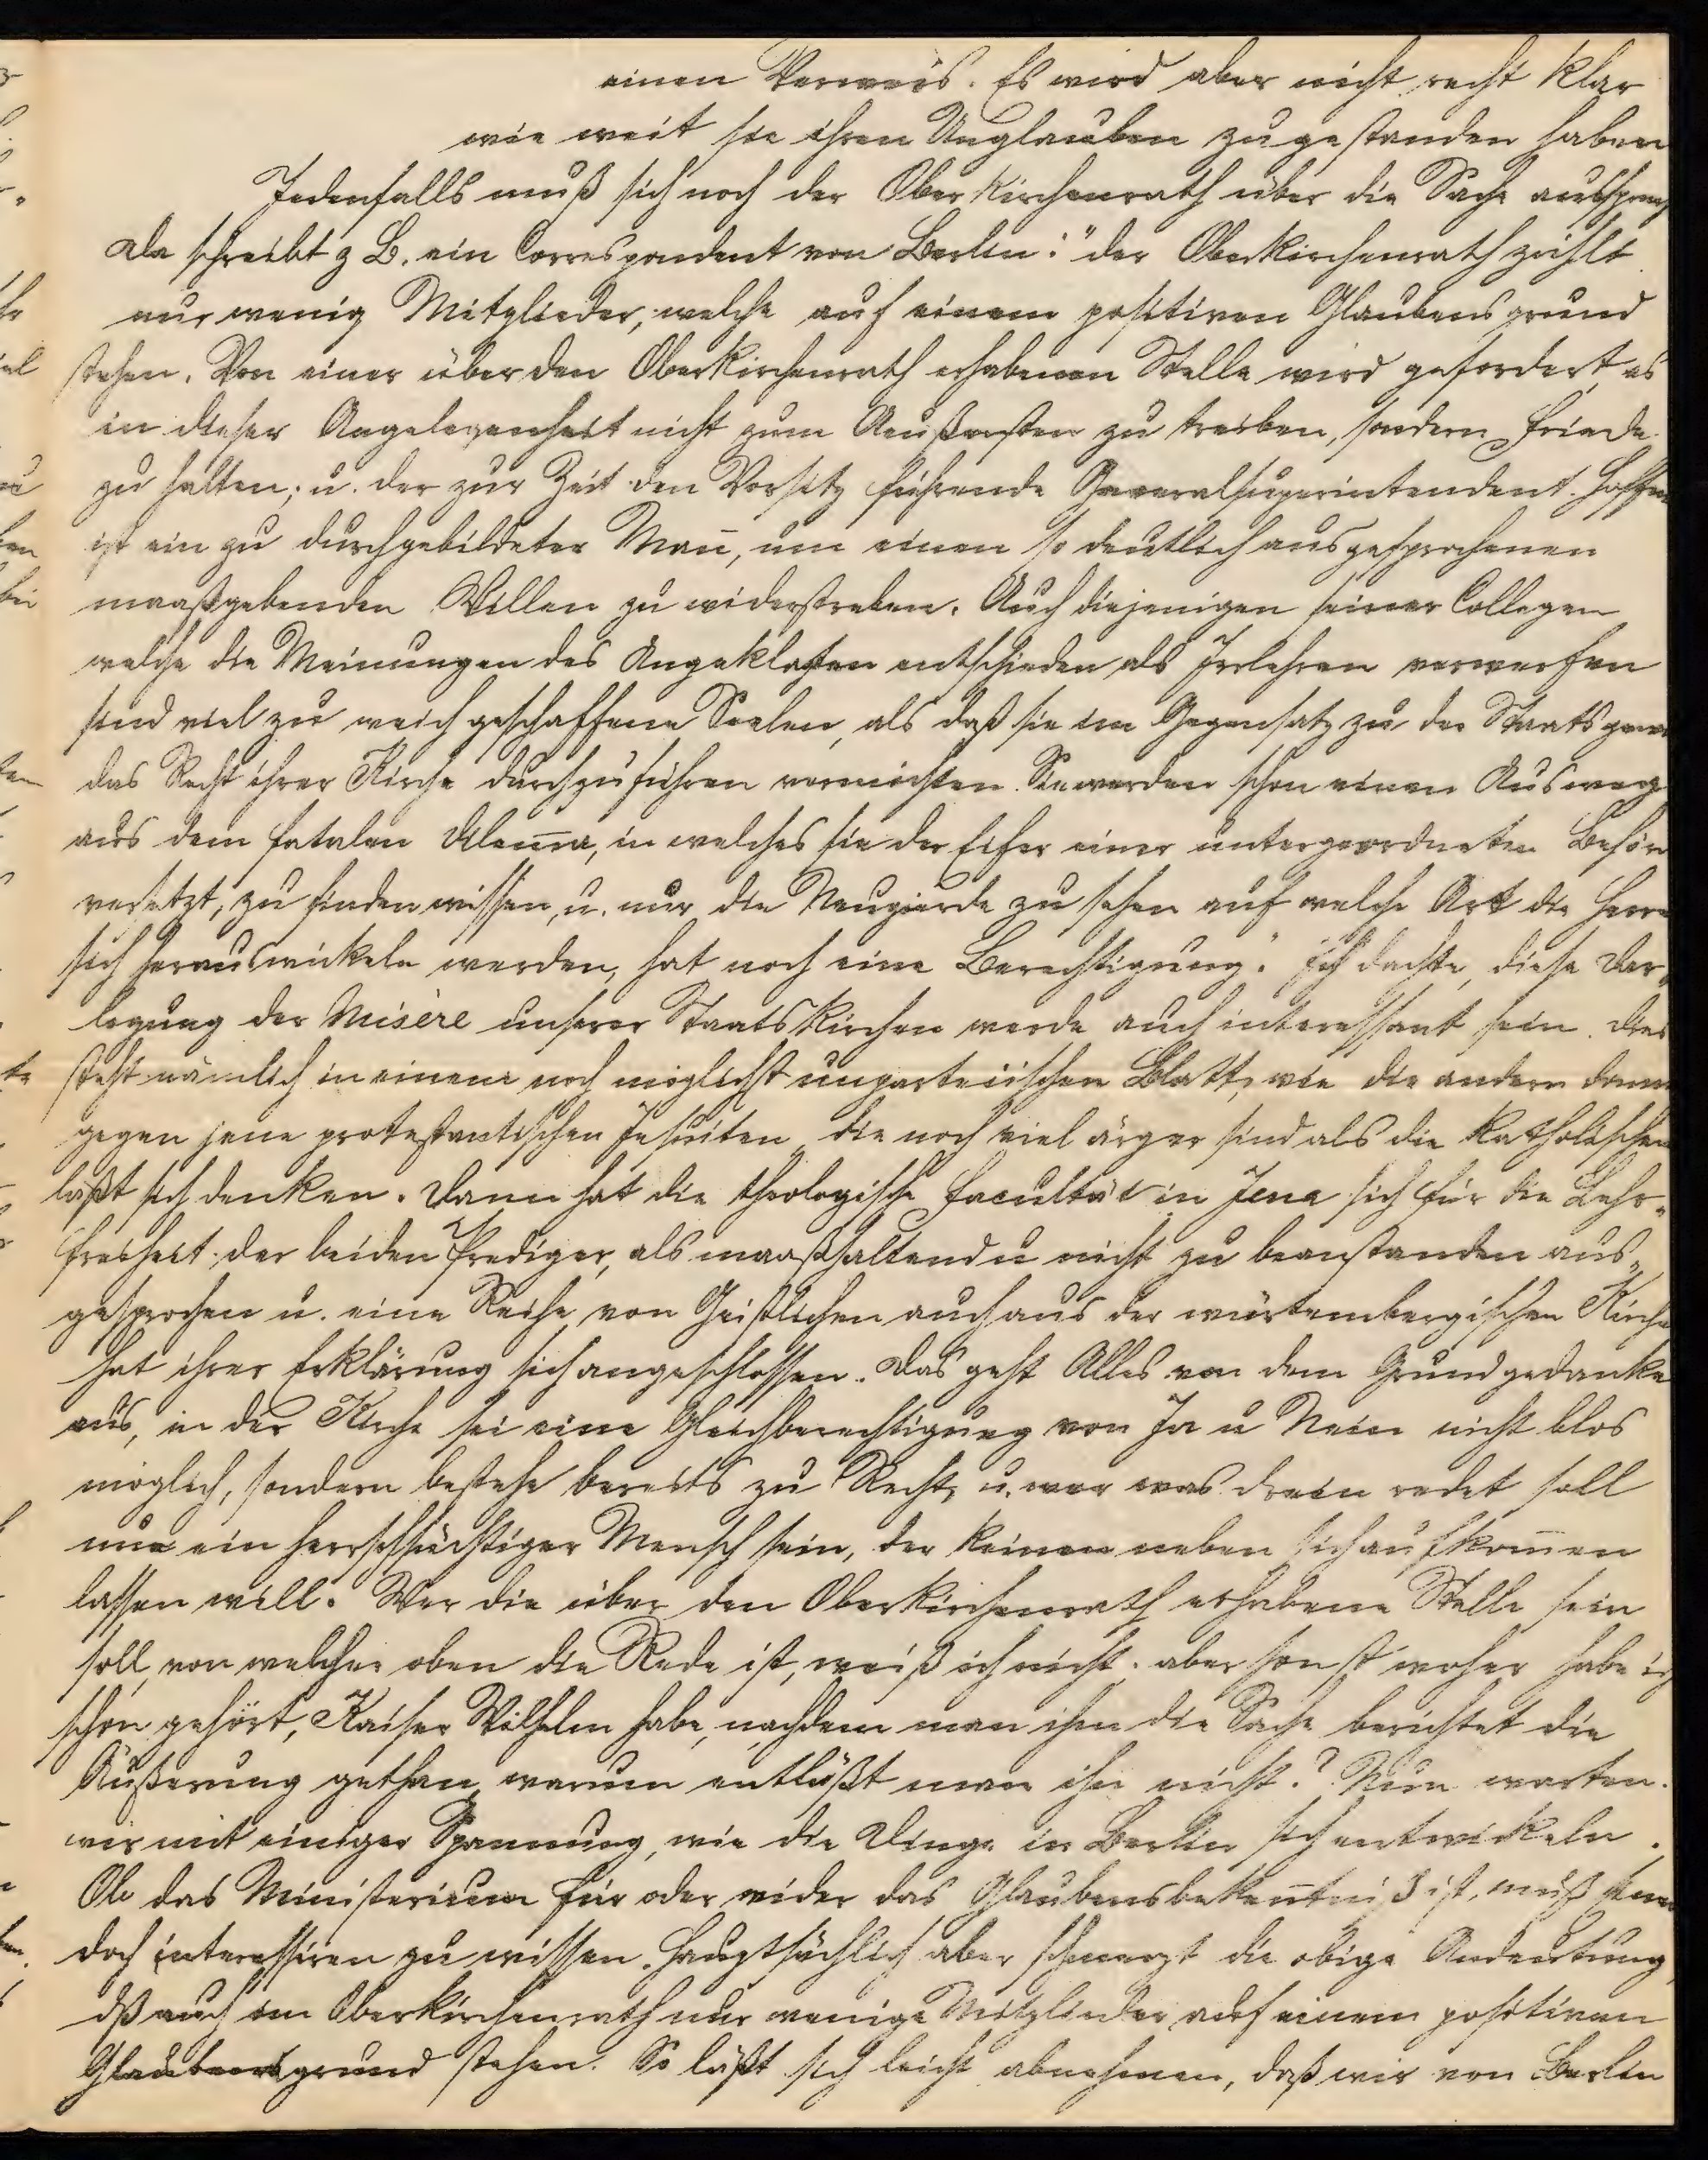 einen Verweis. Es wird aber nicht recht klar
wie weit sie ihren Unglauben zugestanden haben
Jedenfalls muß sich noch der Oberkirchenrath über die Sache aussprech
Da schreibt z B. ein Correspondent von Berlin: "der Oberkirchenrath zählt
nur wenig Mitglieder, welche auf einem positiven Glaubensgrund
stehen. Von einer über den Oberkirchenrath erhabenen Stelle wird gefordert, es
in dieser Angelegenheit nicht zum Aeußersten zu treiben, sondern Friede
zu halten; u. der zur Zeit den Vorsitz führende Generalsuperintendent Hoffm
ist ein zu durchgebildeter Mañ, um einen so deutlich ausgesprochenen
maaßgebenden Willen zu widerstreben. Auch diejenigen seiner Collegen
welche die Meinungen des Angeklagten entschieden als Irrlehren verwerfen
sind viel zu weich geschaffene Seelen, als daß sie im Gegensatz zu der Staatsgew
das Recht ihrer Kirche durchzuführen vermöchten. Sie werden schon einen Ausweg
aus dem fatalen Dilem̄a, in welches sie der Eifer einer untergeordneten Behör
versetzt, zu finden wissen, u. nur die Neugierde zu sehen auf welche Art die Herre
sich herauswickeln werden, hat noch eine Berechtigung." Ich dachte, diese Dar„
legung der Misère unserer Staatskirchen werde auch interessant sein. Dies
steht nämlich in einem noch möglichst unparteiischen Blatt, wie die andern dann
gegen jene protestantischen Jesuiten, die noch viel ärger sind als die katholischen
läßt sich denken. Dann hat die theologische Facultät in Jena sich für die Lehr„
freiheit der beiden Prediger, als maaßhaltend u nicht zu beanstanden aus„
gesprochen u. eine Reihe von Geistlichen auch aus der würtembergischen Kirche
hat ihrer Erklärung sich angeschlossen. Das geht Alles von dem Grundgedanke
aus, in der Kirche sei eine Gleichberechtigung von Ja u Nein nicht blos
möglich, sondern bestehe bereits zu Recht, u. wer was drein redet soll
nur ein herrschsüchtiger Mensch sein, der keinen neben sich aufkom̄en
lassen will. Wer die über den Oberkirchenrath erhabene Stelle sein
soll, von welcher oben die Rede ist, weiß ich nicht. aber sonst woher habe ich
schon gehört, Kaiser Wilhelm habe, nachdem man ihm die Sache berichtet die
Äußerung gethan, warum entläßt man ihn nicht? Nun warten
wir mit einiger Spannung, wie die Dinge in Berlin sich entwickeln.
Ob das Ministerium für oder wider das Glaubensbekeñtniß ist, muß
doch interessiren zu wissen. Hauptsächlich aber schmerzt die obige Andeutung,
dß auch im Oberkirchenrath nur wenige Mitglieder auf einem positiven
Glaubensgrund stehen. So läßt sich leicht abnehmen, daß wir von Berlin